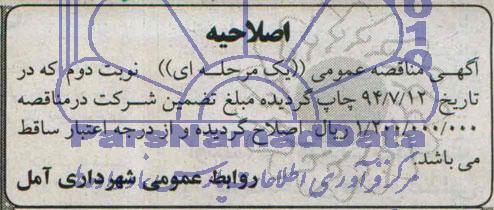 اصلاحیه
آگهی مناقصه عمومی ((یک مرحله ای)) نوبت دوم که در
تاریخ ۹۴/۷/۱۲ چاپ گردیده مبلغ تضمین شرکت در مناقصه
۱/۲۰۰/۰۰۰/۰۰۰ ریال اصلاح گردیده و از درجه اعتبار ساقط
می باشد.
روابط عمومی شهرداری آمل
ParsNamadData
مرکز فرآوری اطلاعات پارس نماد داده ها